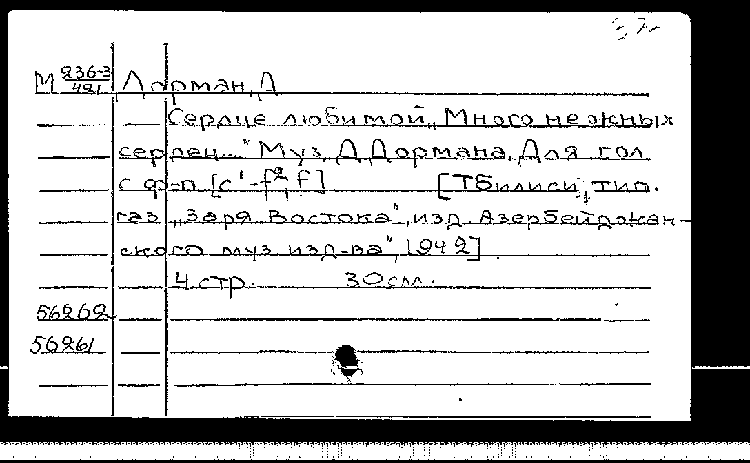 37
М 236-3/421 Дорман, Д
Сердце любимой „Много нежных
сердец..." Муз. Д. Дормана. Для гол.
с ф-п. [c¹-f², F] [Тбилиси, тип.
газ. „Заря Востока", изд. Азербейджан-
ского муз. изд-ва", 1942].
4 стр. 30 см.
56262
56261